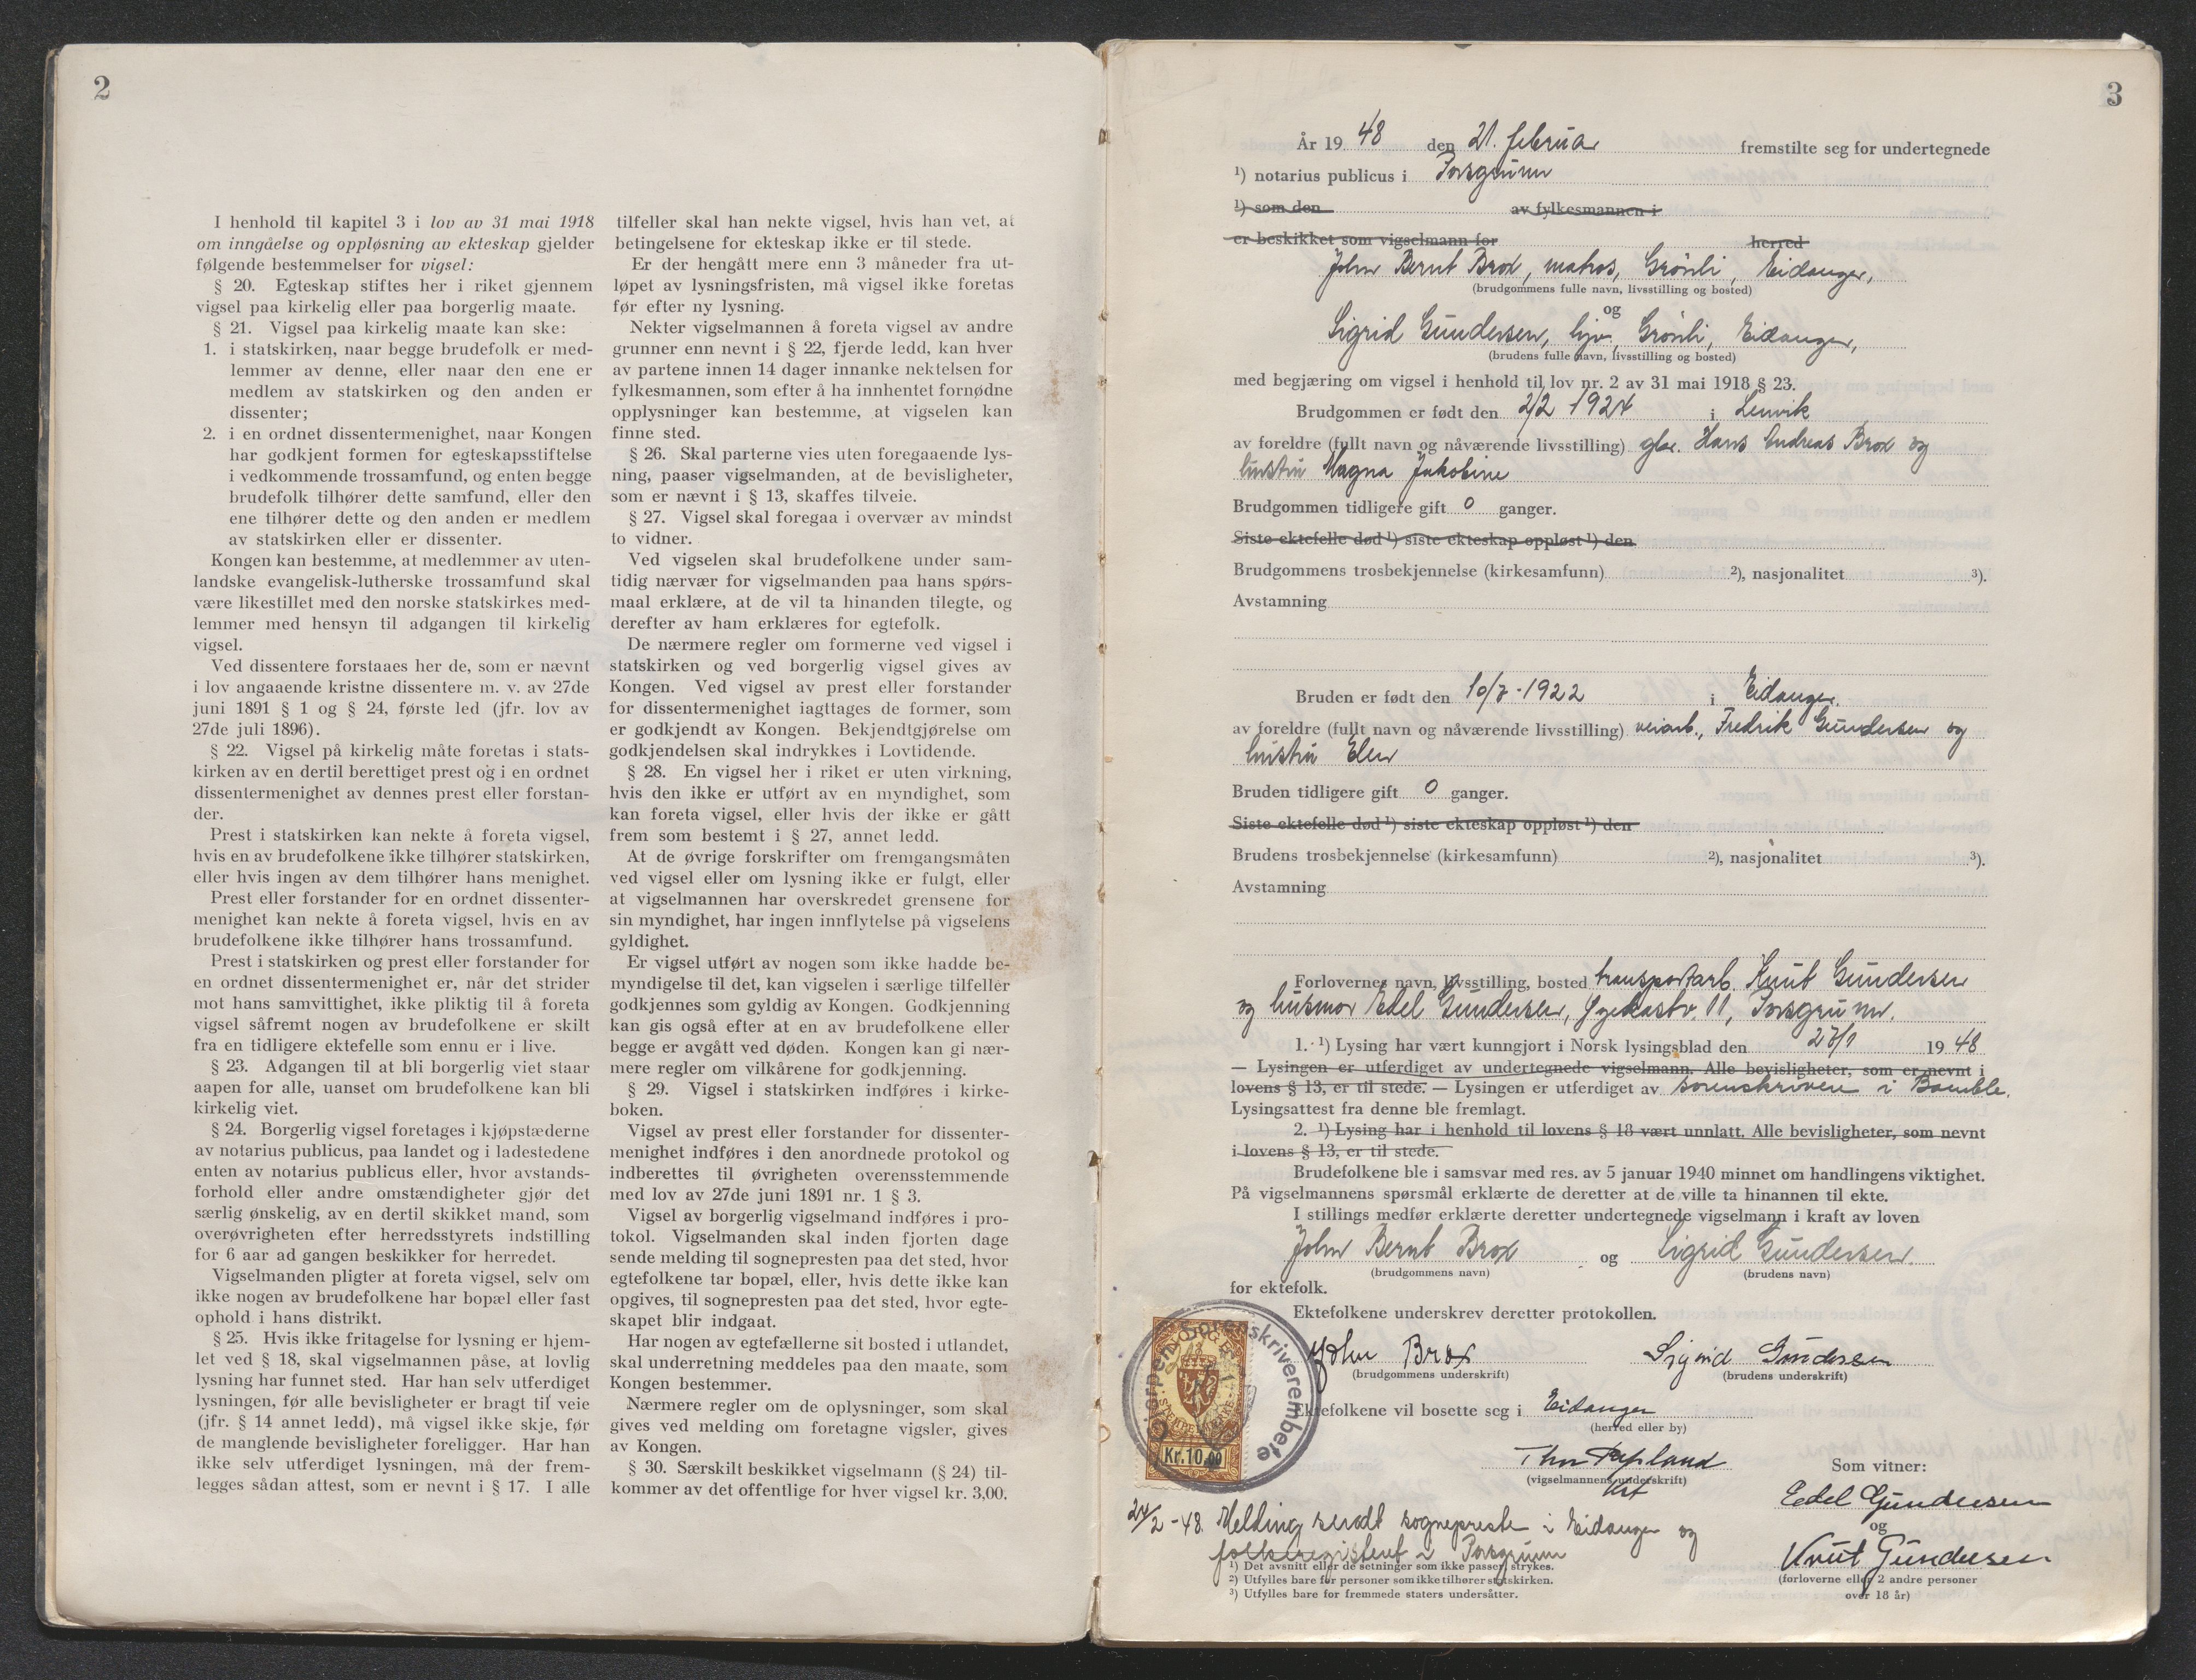 2
I henhold til kapitel 3 i lov av 31 mai 1918
om inngåelse og oppløsning av ekteskap gjelder
følgende bestemmelser for vigsel:
§ 20. Egteskap stiftes her i riket gjennem
vigsel paa kirkelig eller paa borgerlig maate.
§ 21. Vigsel paa kirkelig maate kan ske:
1. i statskirken, naar begge brudefolk er med-
lemmer av denne, eller naar den ene er
medlem av statskirken og den anden er
dissenter;
2. i en ordnet dissentermenighet, naar Kongen
har godkjent formen for egteskapsstiftelse
i vedkommende trossamfund, og enten begge
brudefolk tilhører dette samfund, eller den
ene tilhører dette og den anden er medlem
av statskirken eller er dissenter.
Kongen kan bestemme, at medlemmer av uten-
landske evangelisk-lutherske trossamfund skal
være likestillet med den norske statskirkes med-
lemmer med hensyn til adgangen til kirkelig
vigsel.
Ved dissentere forstaaes her de, som er nævnt
i lov angaaende kristne dissentere m. v. av 27de
juni 1891 § 1 og § 24, første led (jfr. lov av
27de juli 1896).
§ 22. Vigsel på kirkelig måte foretas i stats-
kirken av en dertil berettiget prest og i en ordnet
dissentermenighet av dennes prest eller forstan-
der.
Prest i statskirken kan nekte å foreta vigsel,
hvis en av brudefolkene ikke tilhører statskirken,
eller hvis ingen av dem tilhører hans menighet.
Prest eller forstander for en ordnet dissenter-
menighet kan nekte å foreta vigsel, hvis en av
brudefolkene ikke tilhører hans trossamfund.
Prest i statskirken og prest eller forstander for
en ordnet dissentermenighet er, når det strider
mot hans samvittighet, ikke pliktig til å foreta
vigsel såfremt nogen av brudefolkene er skilt
fra en tidligere ektefelle som ennu er i live.
§ 23. Adgangen til at bli borgerlig viet staar
aapen for alle, uanset om brudefolkene kan bli
kirkelig viet.
§ 24. Borgerlig vigsel foretages i kjøpstæderne
av notarius publicus, paa landet og i ladestedene
enten av notarius publicus eller, hvor avstands-
forhold eller andre omstændigheter gjør det
særlig ønskelig, av en dertil skikket mand, som
overøvrigheten efter herredsstyrets indstilling
for 6 aar ad gangen beskikker for herredet.
Vigselmanden pligter at foreta vigsel, selv om
ikke nogen av brudefolkene har bopæl eller fast
ophold i hans distrikt.
§ 25. Hvis ikke fritagelse for lysning er hjem-
let ved § 18, skal vigselmannen påse, at lovlig
lysning har funnet sted. Har han selv utferdiget
lysningen, før alle bevisligheter er bragt til veie
(jfr. § 14 annet ledd), må vigsel ikke skje, før
de manglende bevisligheter foreligger. Har han
ikke selv utferdiget lysningen, må der frem-
legges sådan attest, som er nevnt i § 17. I alle
tilfeller skal han nekte vigsel, hvis han vet, at
betingelsene for ekteskap ikke er til stede.
Er der hengått mere enn 3 måneder fra ut-
løpet av lysningsfristen, må vigsel ikke foretas
før efter ny lysning.
Nekter vigselmannen å foreta vigsel av andre
grunner enn nevnt i § 22, fjerde ledd, kan hver
av partene innen 14 dager innanke nektelsen for
fylkesmannen, som efter å ha innhentet fornødne
opplysninger kan bestemme, at vigselen kan
finne sted.
§ 26. Skal parterne vies uten foregaaende lys-
ning, paaser vigselmanden, at de bevisligheter,
som er nævnt i § 13, skaffes tilveie.
§ 27. Vigsel skal foregaa i overvær av mindst
to vidner.
Ved vigselen skal brudefolkene under sam-
tidig nærvær for vigselmanden paa hans spørs-
maal erklære, at de vil ta hinanden tilegte, og
derefter av ham erklæres for egtefolk.
De nærmere regler om formerne ved vigsel i
statskirken og ved borgerlig vigsel gives av
Kongen. Ved vigsel av prest eller forstander
for dissentermenighet iagttages de former, som
er godkjendt av Kongen. Bekjendtgjørelse om
godkjendelsen skal indrykkes i Lovtidende.
§ 28. En vigsel her i riket er uten virkning,
hvis den ikke er utført av en myndighet, som
kan foreta vigsel, eller hvis der ikke er gått
frem som bestemt i § 27, annet ledd.
At de øvrige forskrifter om fremgangsmåten
ved vigsel eller om lysning ikke er fulgt, eller
at vigselmannen har overskredet grensene for
sin myndighet, har ingen innflytelse på vigselens
gyldighet.
Er vigsel utført av nogen som ikke hadde be-
myndigelse til det, kan vigselen i særlige tilfeller
godkjennes som gyldig av Kongen. Godkjenning
kan gis også efter at en av brudefolkene eller
begge er avgått ved døden. Kongen kan gi nær-
mere regler om vilkårene for godkjenning.
§ 29. Vigsel i statskirken indføres i kirke-
boken.
Vigsel av prest eller forstander for dissenter-
menighet indføres i den anordnede protokol og
indberettes til øvrigheten overensstemmende
med lov av 27de juni 1891 nr. 1 § 3.
Vigsel av borgerlig vigselmand indføres i pro-
tokol. Vigselmanden skal inden fjorten dage
sende melding til sognepresten paa det sted, hvor
egtefolkene tar bopæl, eller, hvis dette ikke kan
opgives, til sognepresten paa det sted, hvor egte-
skapet blir indgaat.
Har nogen av egtefællerne sit bosted i utlandet,
skal underretning meddeles paa den maate, som
Kongen bestemmer.
Nærmere regler om de oplysninger, som skal
gives ved melding om foretagne vigsler, gives
av Kongen.
§ 30. Særskilt beskikket vigselmann (§ 24) til-
kommer av det offentlige for hver vigsel kr. 3,00.
3
År 19 48 den 21. februar fremstilte seg for undertegnede
¹) notarius publicus i Porsgrunn
¹) som den av fylkesmannen i
er beskikket som vigselmann for herred
John Bernt Brox, matros, Grönli, Eidanger,
(brudgommens fulle navn, livsstilling og bosted)
og
Sigrid Gundersen, hjv., Grönli, Eidanger,
(brudens fulle navn, livsstilling og bosted)
med begjæring om vigsel i henhold til lov nr. 2 av 31 mai 1918 § 23.
Brudgommen er født den 2/2 1924 i Lenvik
av foreldre (fullt navn og nåværende livsstilling) gbr. Hans Andreas Brox og
hustru Magna Jakobine
Brudgommen tidligere gift 0 ganger.
Siste ektefelle død ¹) siste ekteskap oppløst ¹) den
Brudgommens trosbekjennelse (kirkesamfunn) ²), nasjonalitet ³).
Avstamning
Bruden er født den 10/7-1922 i Eidanger.
av foreldre (fullt navn og nåværende livsstilling) veiarb., Fredrik Gundersen og
hustru Elen
Bruden tidligere gift 0 ganger.
Siste ektefelle død ¹) siste ekteskap oppløst ¹) den
Brudens trosbekjennelse (kirkesamfunn) ²), nasjonalitet ³).
Avstamning
Forlovernes navn, livsstilling, bosted transportarb. Knut Gundersen
og husmor Edel Gundersen, 11, Porsgrunn.
1. ¹) Lysing har vært kunngjort i Norsk lysingsblad den 27/1 19 48
— Lysingen er utferdiget av undertegnede vigselmann. Alle bevisligheter, som er nevnt i
lovens § 13, er til stede. — Lysingen er utferdiget av sorenskriveren i Bamble.
Lysingsattest fra denne ble fremlagt.
2. ¹) Lysing har i henhold til lovens § 18 vært unnlatt. Alle bevisligheter, som nevnt
i lovens § 13, er til stede.
Brudefolkene ble i samsvar med res. av 5 januar 1940 minnet om handlingens viktighet.
På vigselmannens spørsmål erklærte de deretter at de ville ta hinannen til ekte.
I stillings medfør erklærte deretter undertegnede vigselmann i kraft av loven
John Bernt Brox og Sigrid Gundersen.
(brudgommens navn) (brudens navn)
for ektefolk.
Ektefolkene underskrev deretter protokollen.
John Brox Sigrid Gundersen
(brudgommens underskrift) (brudens underskrift)
Ektefolkene vil bosette seg i Eidanger
(herred eller by)
Gjerpen Sorenskriverembete
Kr. 10.00
Thor
(vigselmannens underskrift)
Som vitner:
Edel Gundersen
og
Knut Gundersen
(forloverne eller 2 andre personer
over 18 år)
24/2-48. Melding sendt sogneprest i Eidanger og
folkeregisteret i Porsgrunn
¹) Det avsnitt eller de setninger som ikke passer, strykes.
²) Utfylles bare for personer som ikke tilhører statskirken.
³) Utfylles bare for fremmede staters undersåtter.